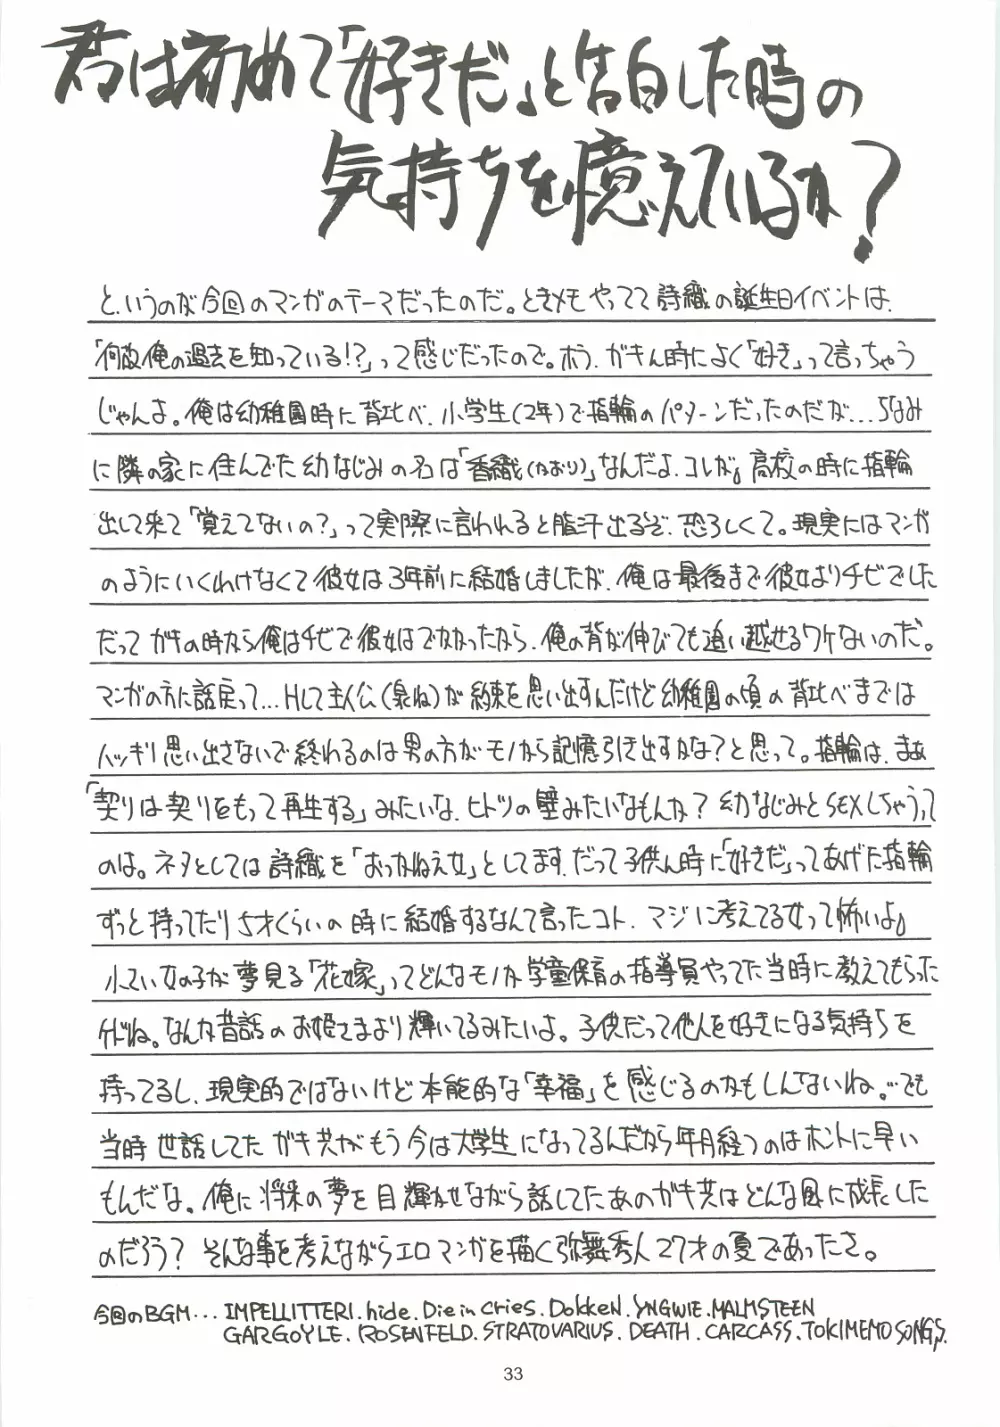 君は初めて「好きだ」と告白した時の
気持ちを憶えているか?
というのが今回のマンガのテーマだったのだ。ときメモやってて詩織の誕生日イベントは、
「何故俺の過去を知っている!?」って感じだったので。ホラ、ガキん時によく「好き」って言っちゃう
じゃんよ。俺は幼稚園時に背比べ、小学生(2年)で指輪のパターンだったのだが…ちなみ
に隣の家に住んでた幼なじみの名は「香織(かおり)」なんだよ、コレが。高校の時に指輪
出して来て「覚えてないの?」って実際に言われると脂汗出るぞ、恐ろしくて。現実にはマンガ
のようにいくわけなくて彼女は3年前に結婚しましたが、俺は最後まで彼女よりチビでした
だってガキの時から俺はチビで彼女はでかかったから、俺の背が伸びても追い越せるワケないのだ。
マンガの方に話戻って…Hして主人公(泉ね)が約束を思い出すんだけど幼稚園の頃の背比べまでは
ハッキリ思い出さないで終わるのは男の方がモノから記憶引き出すかな?と思って。指輪は、まぁ
「契りは契りをもって再生する」みたいな、ヒトツの壁みたいなもんか?幼なじみとSEXしちゃうって
のは。ネタとしては詩織を「おっかねえ女」としてます、だって子供ん時に「好きだ」ってあげた指輪
ずっと持ってたり5才くらいの時に結婚するなんて言ったコト、マジに考えてる女って怖いよ。
小さい女の子が夢見る「花嫁」ってどんなモノか学童保育の指導員やってた当時に教えてもらった
けどね。なんか昔話のお姫さまより輝いてるみたいよ。子供だって他人を好きになる気持ちを
持ってるし、現実的ではないけど本能的な「幸福」を感じるのかもしんないね。…でも
当時世話してたガキ共がもう今は大学生になってるんだから年月経つのはホントに早い
もんだな。俺に将来の夢を目輝かせながら話してたあのガキ共はどんな風に成長した
のだろう?そんな事を考えながらエロマンガを描く弥舞秀人27才の夏であったさ。
今回のBGM...IMPELLITTERI.hide.Die in Cries.Dokken.YNGWIE.MALMSTEEN
GARGOYLE.ROSENFELD.STRATOVARIUS.DEATH.CARCASS.TOKIMEMO SONGS.
33